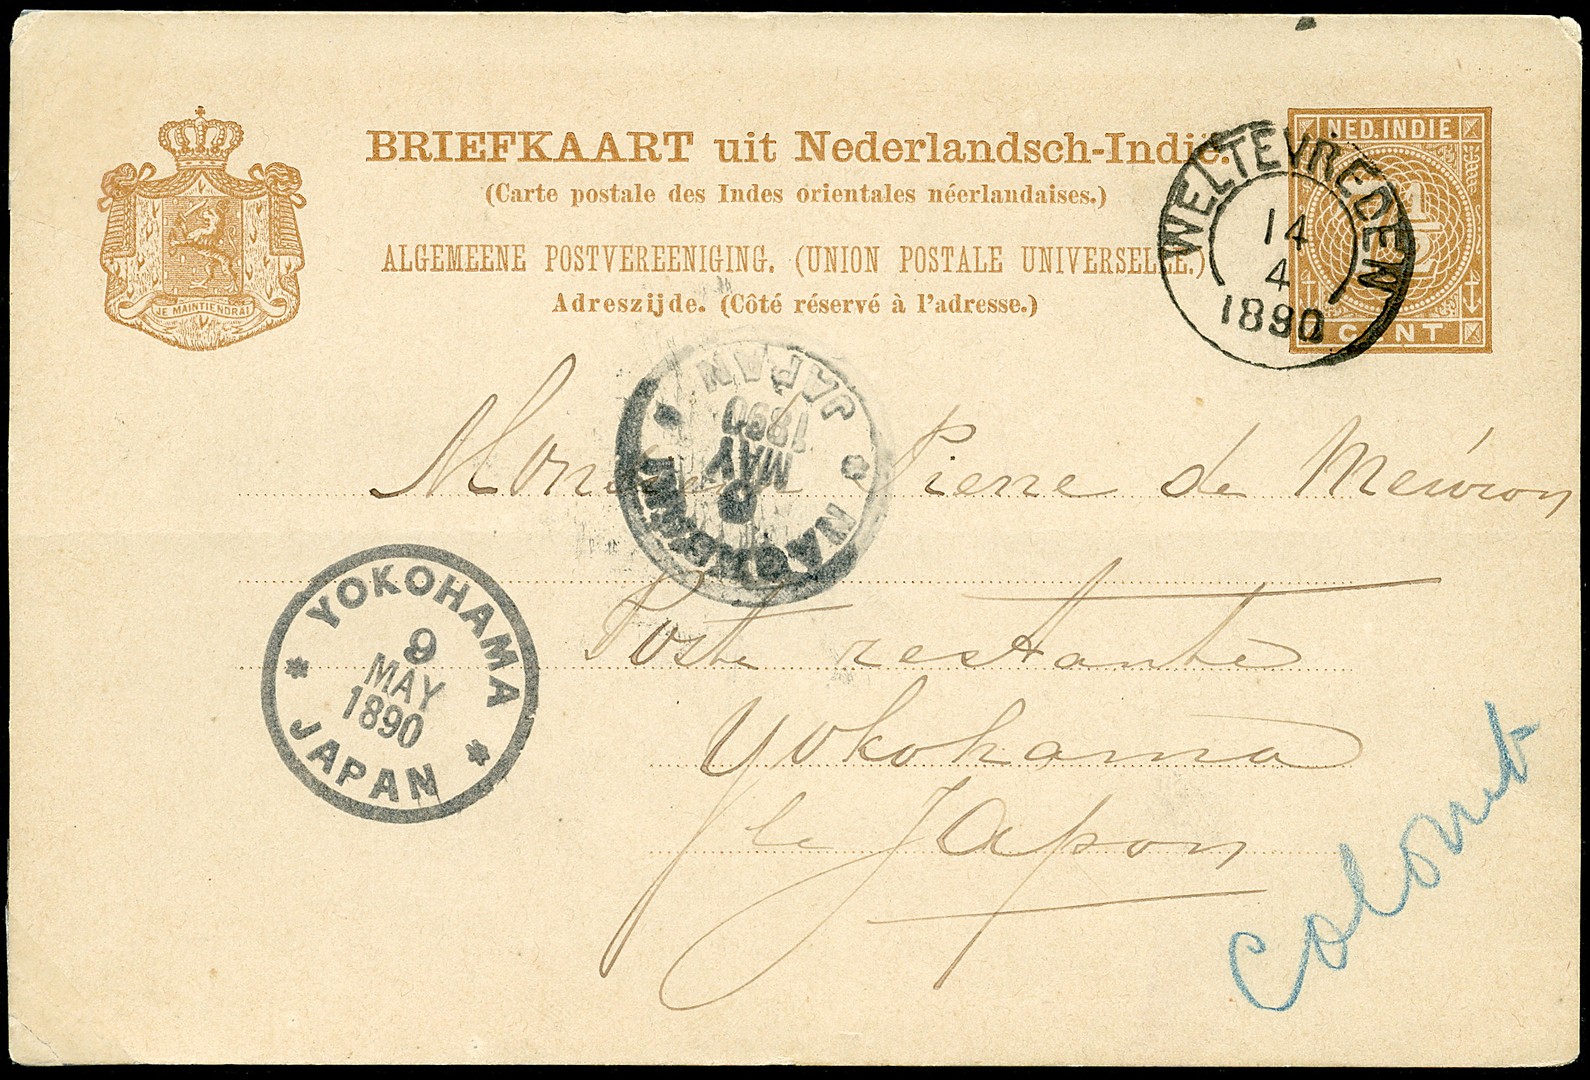 BRIEFKAART uit Nederlandsch-Indië.
(Carte postale des Indes orientales néerlandaises.)
ALGEMEENE POSTVEREENIGING. (UNION POSTALE UNIVERSELLE.)
Adreszijde. (Côté réservé à l'adresse.)
JE MAINTIENDRAI
NED. INDIE
CENT
WELTEVREDEN
14
4
1890
JAPAN
1890
MAY
NAGASAKI
Monsieur Pierre de Meuron
Poste restante
Yokohama
le Japon
YOKOHAMA
9
MAY
1890
JAPAN